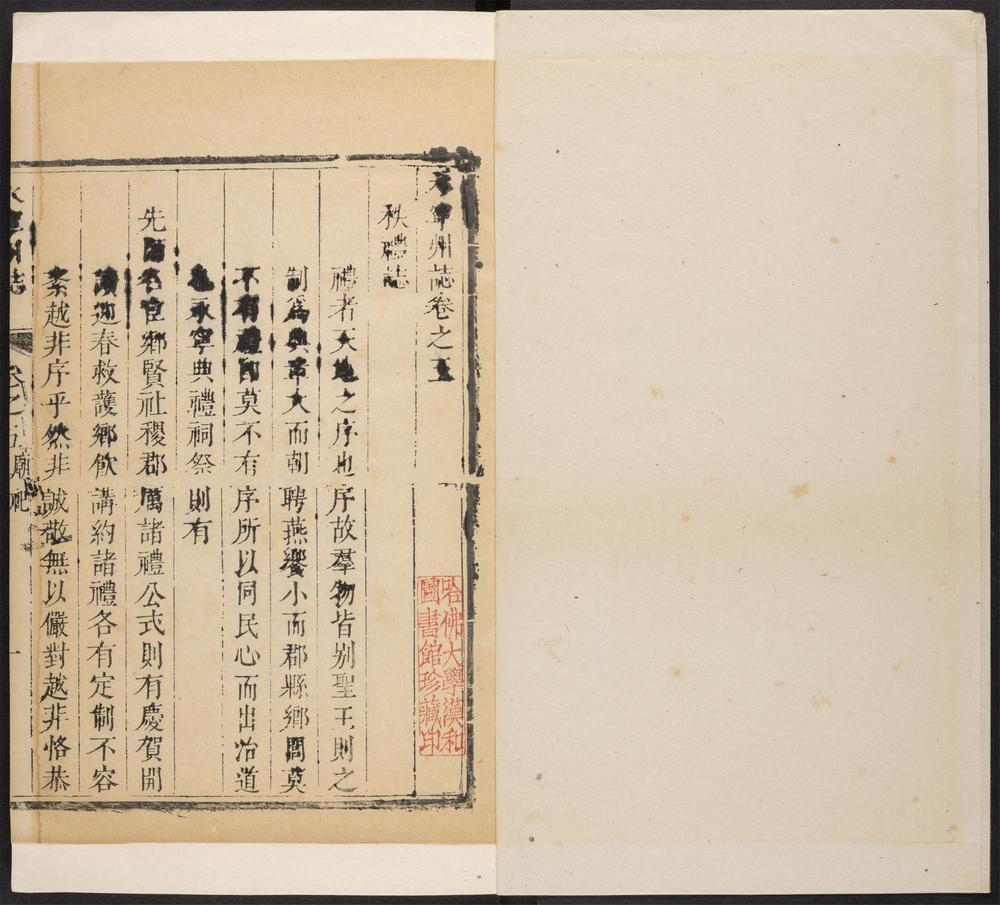 永寧州誌卷之五
秩禮誌
禮者天地之序也序故羣物皆别聖王則之
制爲典章大而朝聘燕饗小而郡縣鄉閭莫
不有禮卽莫不有序所以同民心而出治道
也永寧典禮祠祭則有
先師名宦鄉賢社稷郡厲諸禮公式則有慶賀開
讀迎春救護鄉飲講約諸禮各有定制不容
紊越非序乎然非誠敬無以儼對越非恪恭
永寧州誌 卷之五 廟祀 一
哈佛大學漢和
圖書館珍藏印